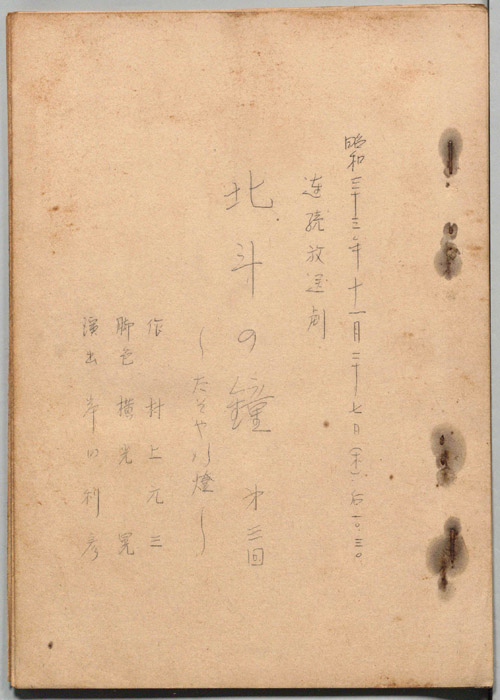 昭和三十三年十一月二十七日(木)后一〇.三〇
連続放送劇
北斗の鐘 第三回
〜たそや行燈〜
作 村上元三
脚色 横光晃
演出 岸田利彦